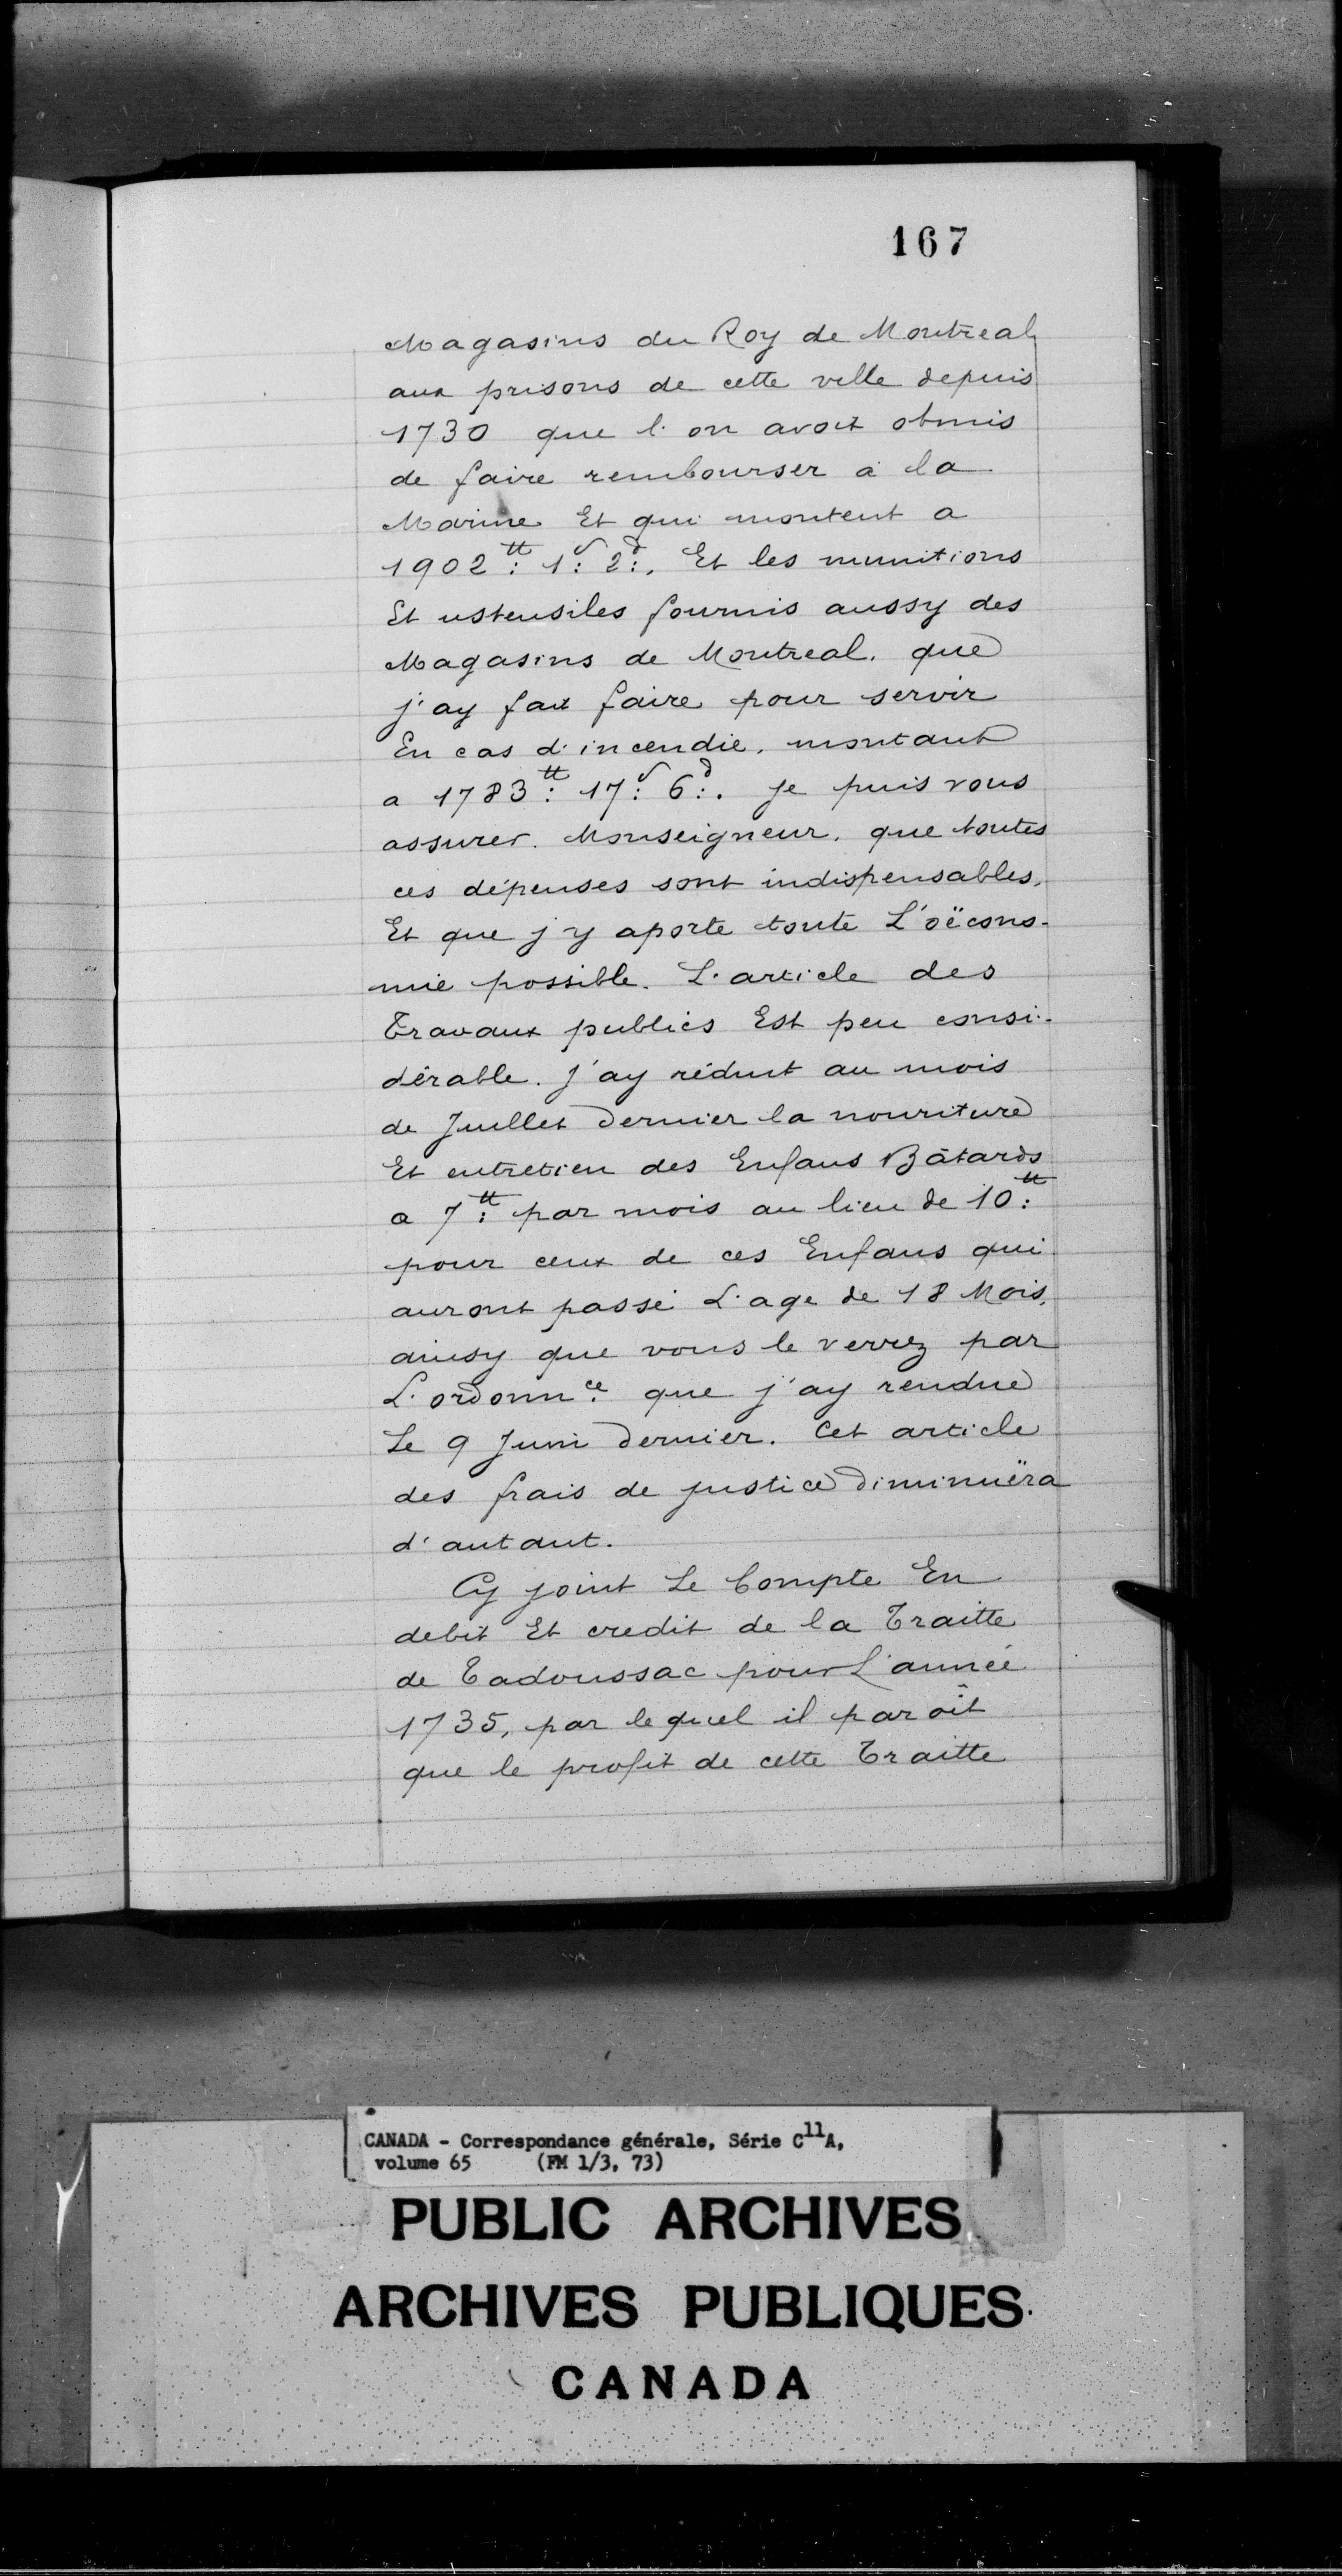 167
Magasins du Roy de Montreal
aux prisons de cette ville depuis
1730 que l'on avoit obmis
de faire rembourser à la
Marine Et qui montent a
1902 ₶: 1 s: 2 d:, Et les munitions
Et ustensiles fournis aussy des
Magasins de Montreal. que
j'ay fait faire pour servir
En cas d'incendie, montant
a 1783 ₶: 17 s: 6 d:. Je puis vous
assurer. Monseigneur, que toutes
ces dépenses sont indispensables.
Et que j'y aporte toute L'oëcono-
mie possible. L'article des
Travaux publics Est peu consi-
dérable. J'ay réduit au mois
de Juillet dernier la nouriture
Et entretien des Enfans Bâtards
a 7 ₶: par mois au lieu de 10 ₶:
pour ceux de ces Enfans qui
auront passé L'age de 18 Mois,
ainsy que vous le verrez par
L'ordonn.ce que j'ay rendue
Le 9 Juin dernier. Cet article
des frais de justice diminuëra
d'autant.
Cy joint Le Compte En
debit Et credit de la Traitte
de Tadoussac pour L'année
1735, par lequel il paroît
que le profit de cette Traitte
CANADA - Correspondance générale, Série C11A,
volume 65 (FM 1/3, 73)
PUBLIC ARCHIVES
ARCHIVES PUBLIQUES
CANADA